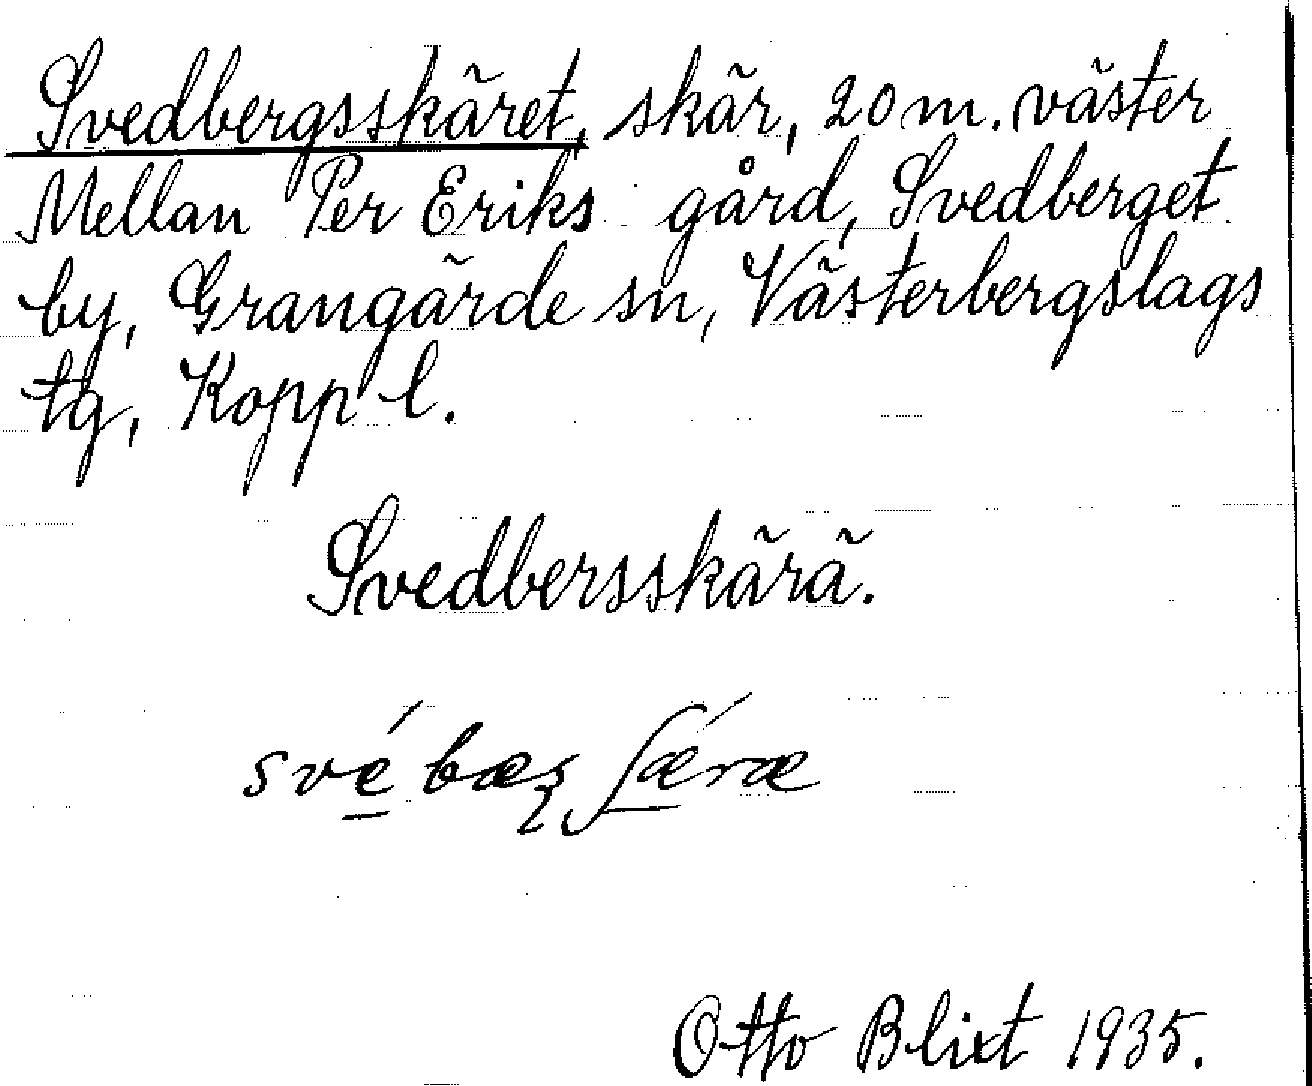 Svedbergsskäret, skär, 20 m. väster
Mellan Per Eriks gård, Svedberget
by, Grangärde sn, Västerbergslags
tg, Kopp l.
Svedbersskärä.
své bæʂ ʃǽræ
Otto Blixt 1935.